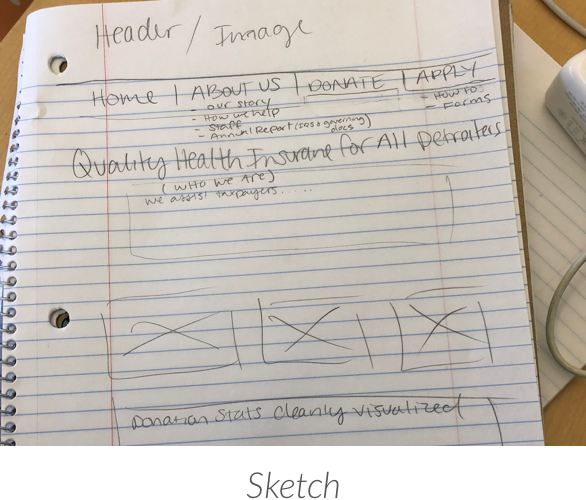 Header / Image
Home | ABOUT US | DONATE | APPLY
- our story
- How we help
- Staff
- Annual Report (990 & governing docs)
- How to
- Forms
Quality Health Insurance for All Detroiters
(Who we Are)
we assist taxpayers.....
Donation Stats Cleanly visualized
Sketch